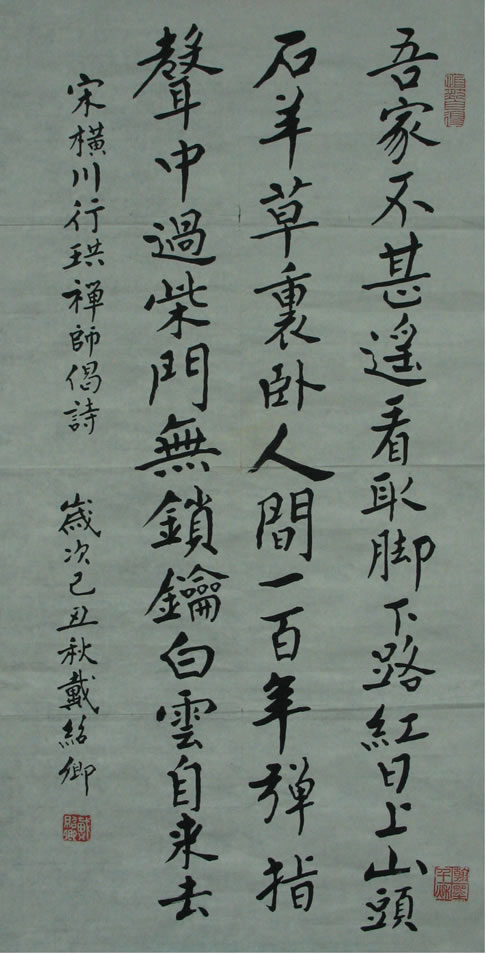 吾家不甚遥看取脚下路紅日上山頭
石羊草裏卧人間一百年彈指
聲中過柴門無鎖鑰白雲自来去
宋橫川行珙禪師偈詩
歲次己丑秋戴紹卿